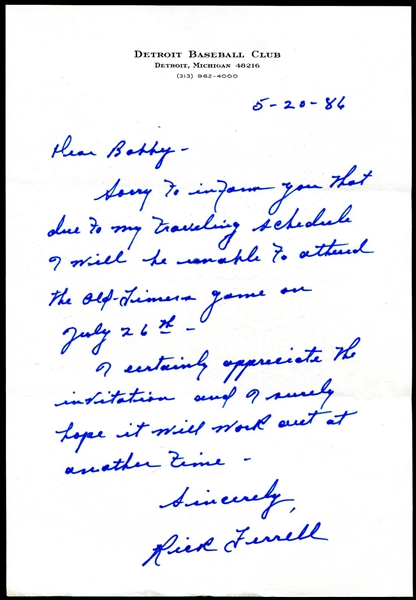 DETROIT BASEBALL CLUB
DETROIT, MICHIGAN 48216
(313) 962-4000
5-20-86
Dear Bobby -
Sorry to inform you that
due to my traveling schedule
I will be unable to attend
the Old-Timers game on
July 26th -
I certainly appreciate the
invitation and I surely
hope it will work out at
another time -
Sincerely,
Rick Ferrell